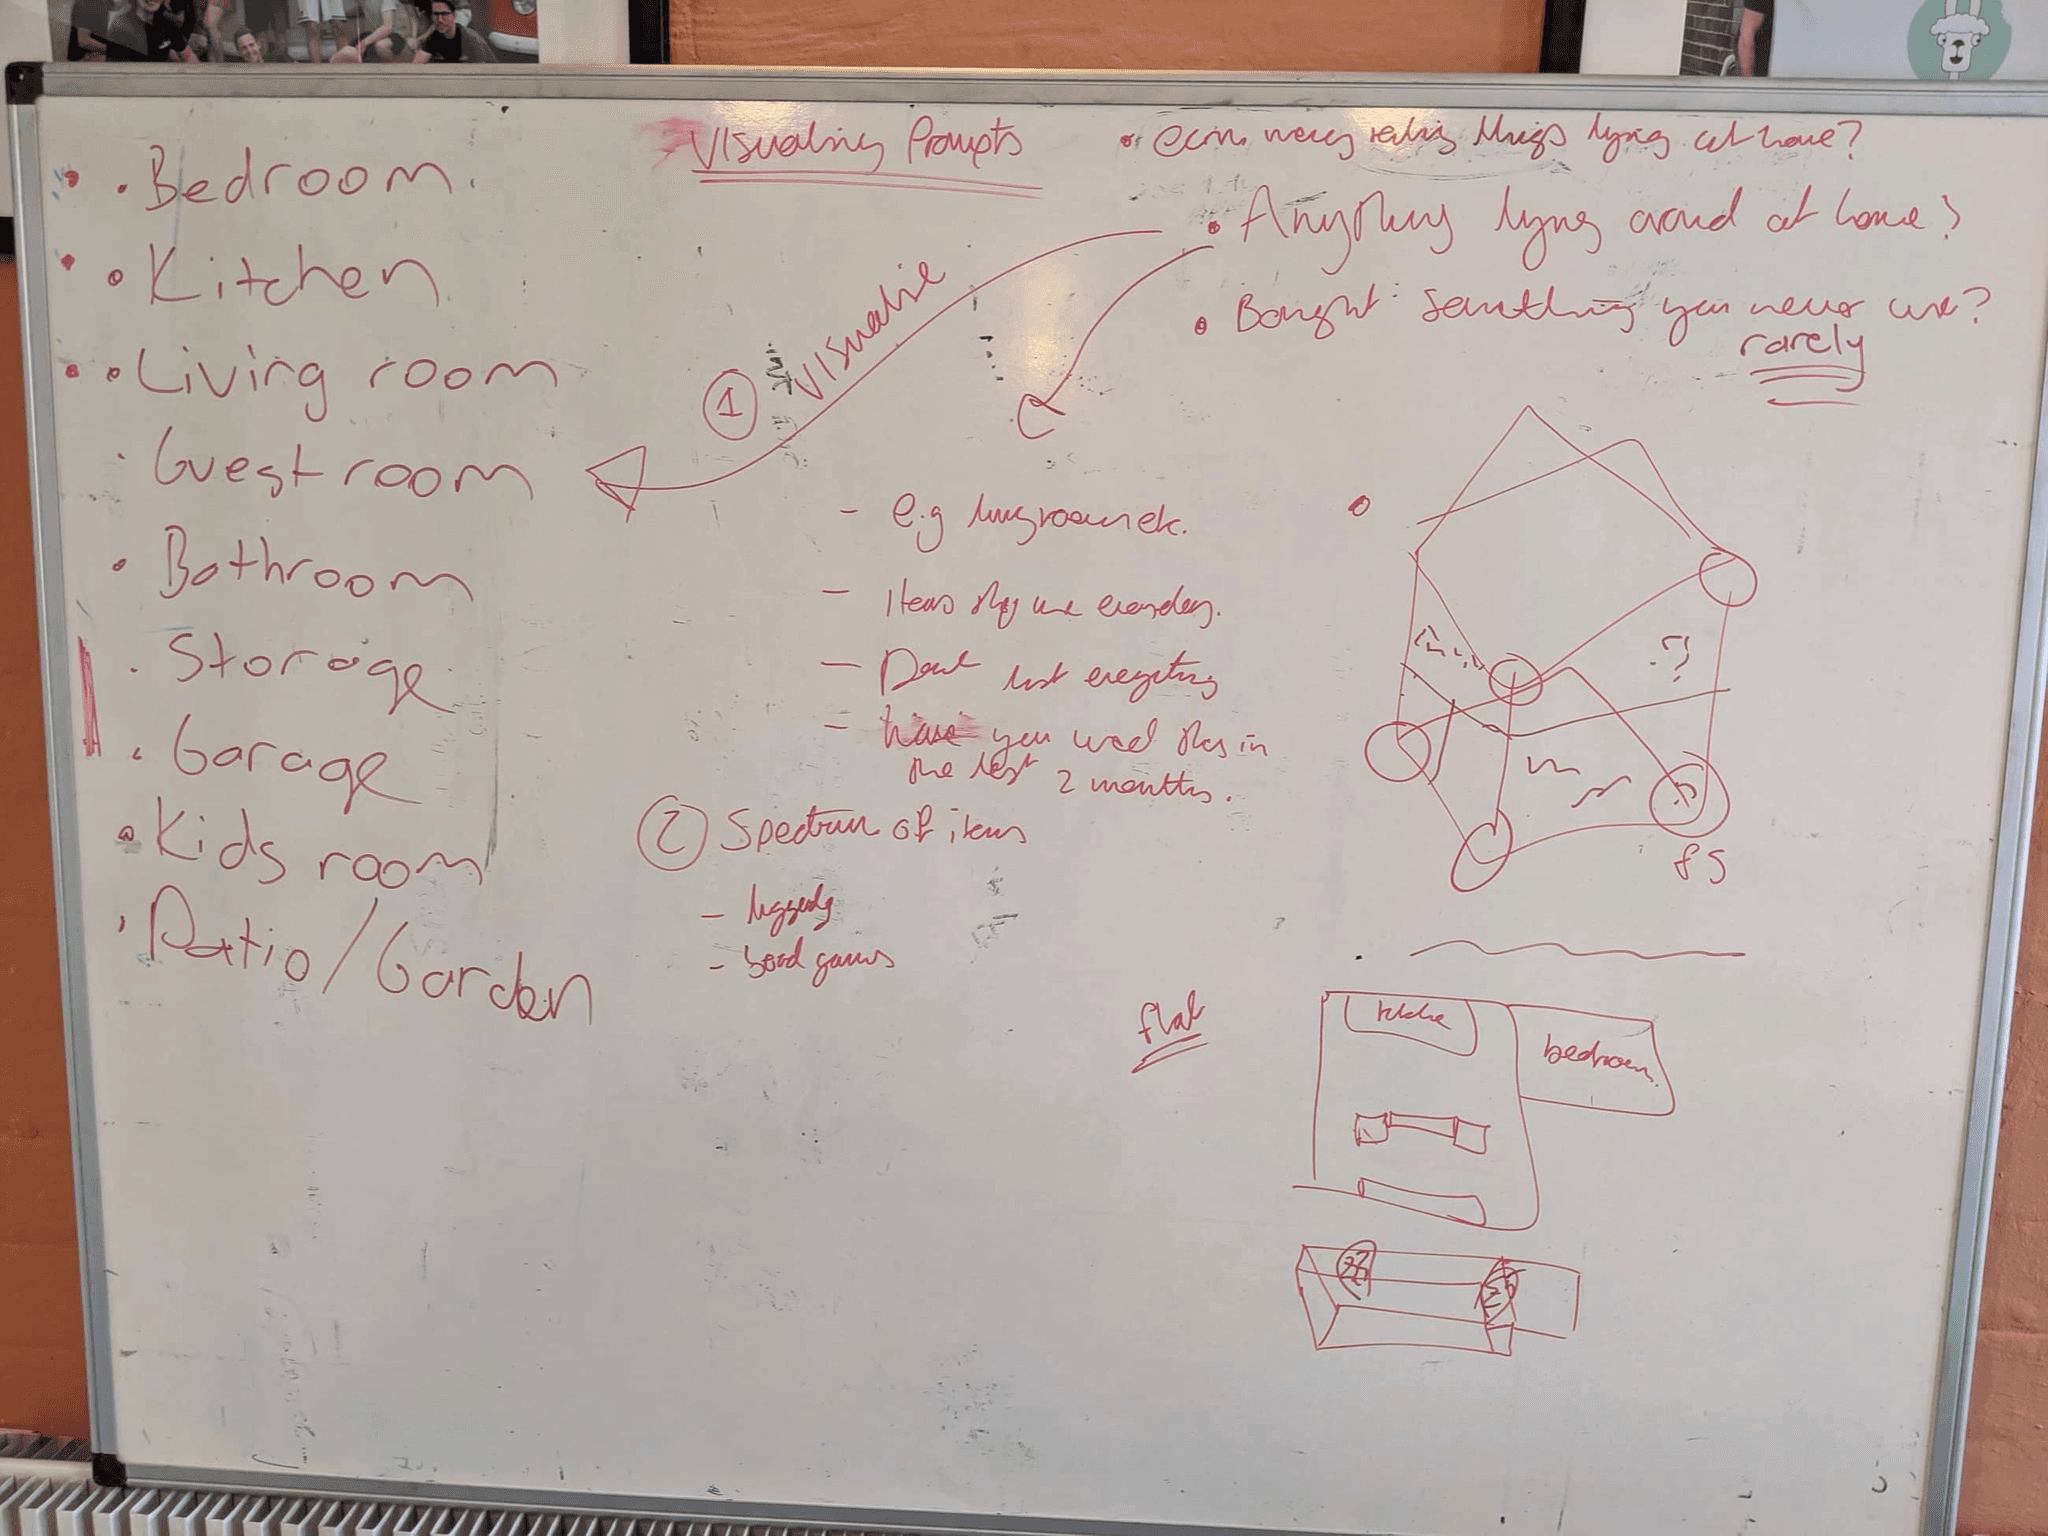 Visualising Prompts
• Bedroom.
• Kitchen
• Living room
• Guest room
• Bathroom
• Storage
• Garage
• Kids room
• Patio / Garden
• earn money renting things lying at home?
• Anything lying around at home?
• Bought something you never use?
rarely
1 Visualise
- e.g living room etc.
- Items they use everyday.
- Dont list everything
- have you used this in
the last 2 months.
2 Spectrum of items
- board games
?
flat
kitchen
bedroom.